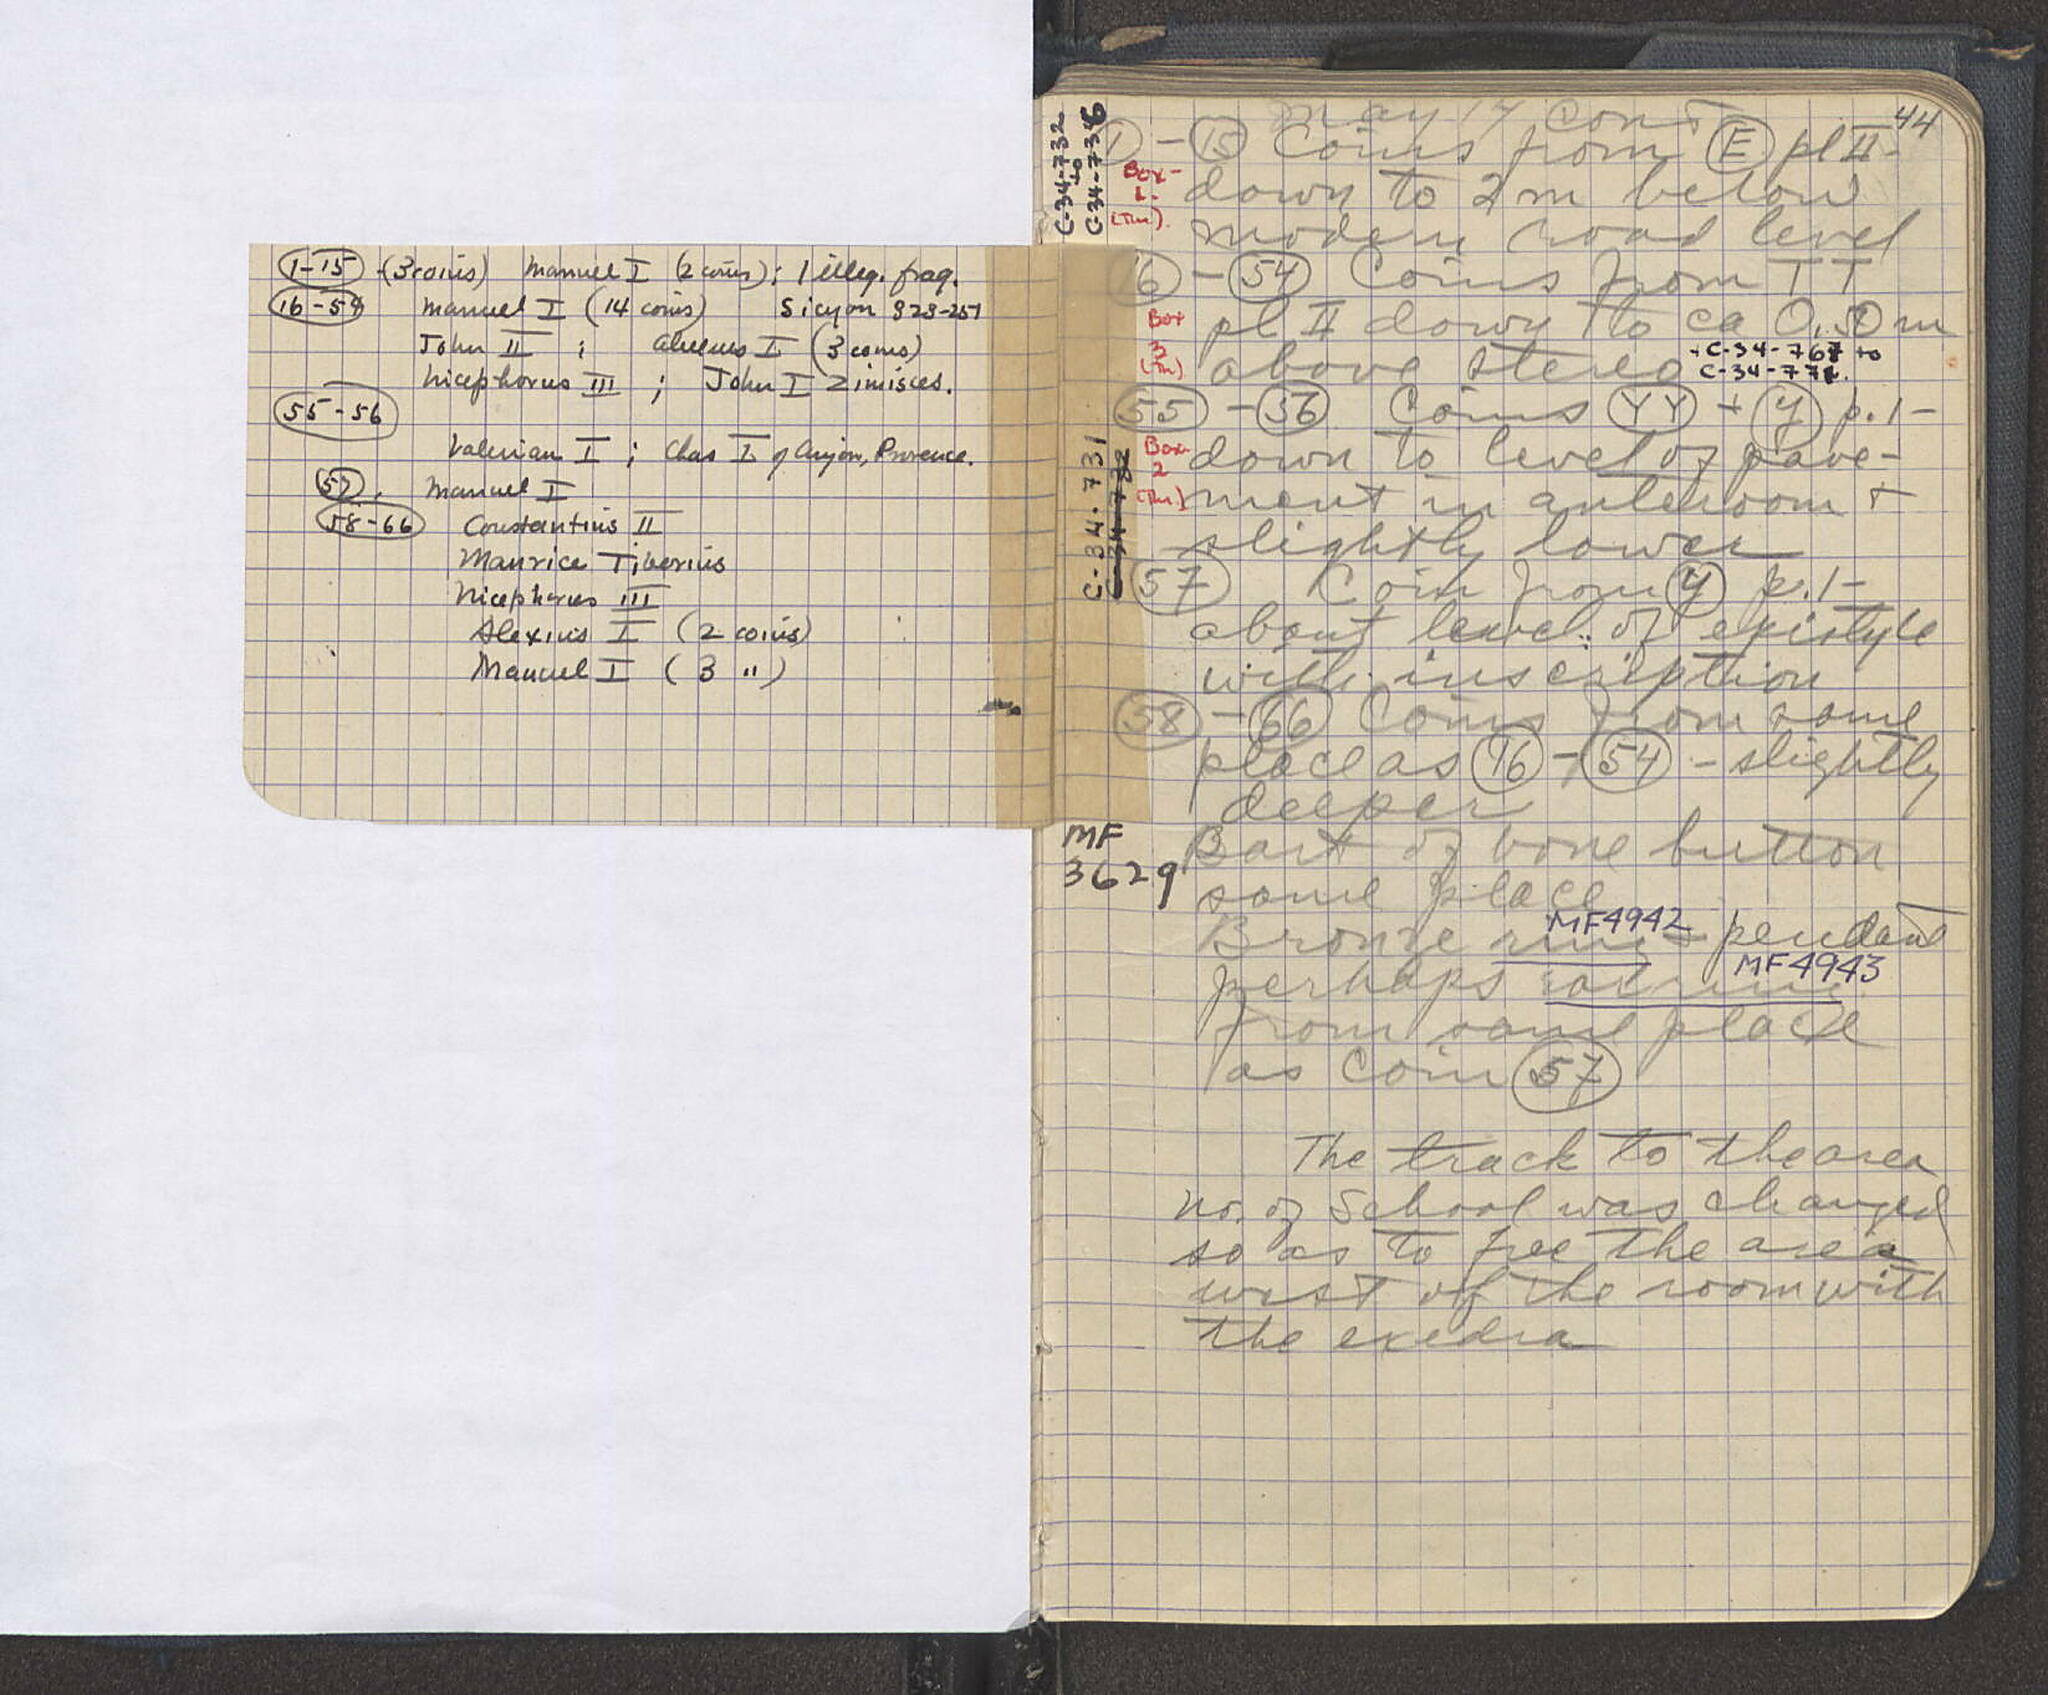 1-15 (3 coins) Manuel I (2 coins); 1 illeg. frag.
16-54 Manuel I (14 coins) Sicyon 323-251
John II ; Alexius I (3 coins)
Nicephorus III ; John I Zimisces.
55-56
Valerian I ; Chas I of Anjou, Provence.
57. Manuel I
58-66 Constantius II
Maurice Tiberius
Nicephorus III
Alexius I (2 coins)
Manuel I ( 3 " )
44
May 17 cont
C-34-732
to
C-34-736
1 - 15 Coins from E pl II -
Box-
1-
(Tin).
down to 2 m below
modern road level
16 - 54 Coins from TT
Box
3
(Tin)
pl II down to ca 0.50 m
above stereo
+C-34-767 to
C-34-771.
55 - 56 Coins YY + Y p.1-
Box
2
(Tin)
down to level of pave-
ment in anteroom +
slightly lower
C-34-731
C-34-732
57 Coin from Y p.1-
about level of epistyle
with inscription
58 - 66 Coins from same
place as 16 - 54 - slightly
deeper
MF
3629
Part of bone button
same place
MF4942
Bronze ring + pendant
MF4943
perhaps earring
from same place
as coin 57
The track to the area
no. of School was changed
so as to free the area
west of the room with
the exedra